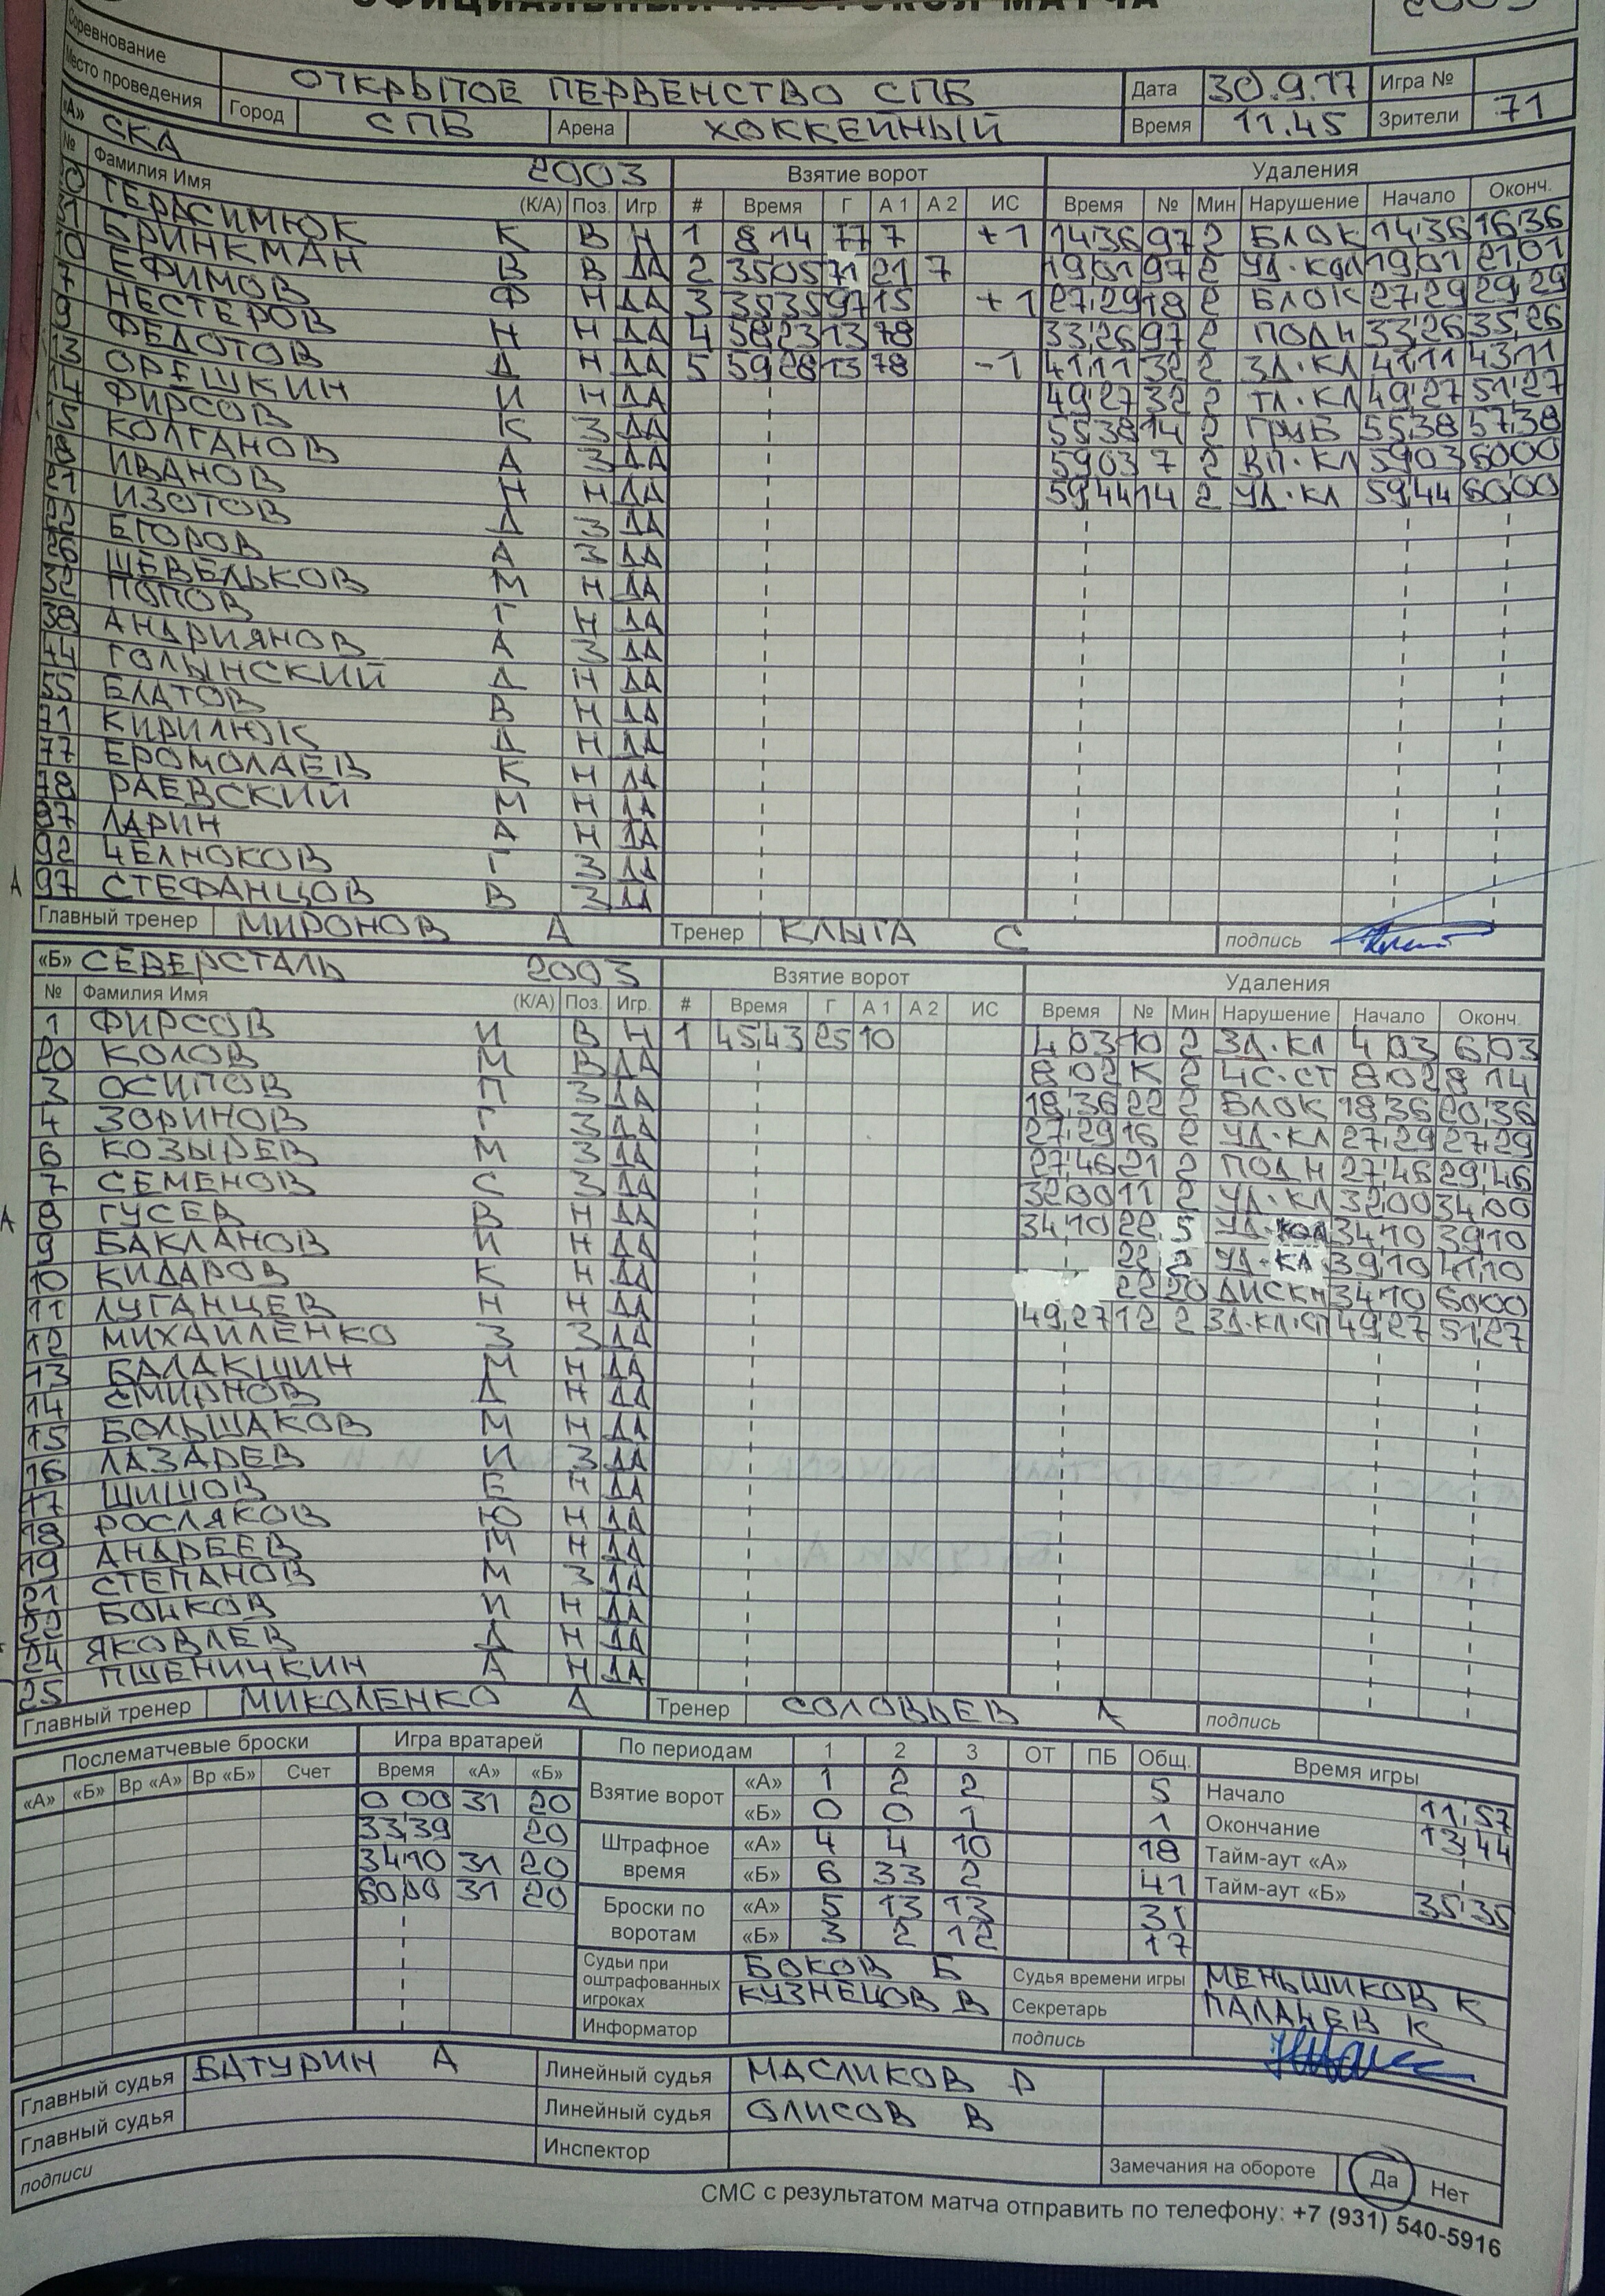 ОФИЦИАЛЬНЫЙ ПРОТОКОЛ МАТЧА
2003
Соревнование ОТКРЫТОЕ ПЕРВЕНСТВО СПБ Дата 30.9.17 Игра №
Место проведения Город СПБ Арена ХОККЕЙНЫЙ Время 11.45 Зрители 71
«А» СКА 2003 Взятие ворот Удаления
№ Фамилия Имя (К/А) Поз. Игр # Время Г А 1 А 2 ИС Время № Мин Нарушение Начало Оконч.
ГЕРАСИМЮК К В Н 1 8 14 77 7 +1 14,36 97 2 БЛОК 14,36 16,36
31 БРИНКМАН В В ДА 2 35,05 71 21 7 19,01 97 2 УД·КОЛ 19,01 21,01
10 ЕФИМОВ Ф Н ДА 3 35,35 97 15 +1 27,29 18 2 БЛОК 27,29 29,29
7 НЕСТЕРОВ Н Н ДА 4 58,23 13 78 33,26 97 2 ПОДН 33,26 35,26
9 ФЕДОТОВ Д Н ДА 5 59,28 13 78 -1 41,11 32 2 ЗД·КЛ 41,11 43,11
13 ОРЕШКИН И Н ДА 49,27 32 2 ТЛ·КЛ 49,27 51,27
14 ФИРСОВ К З ДА 55,38 14 2 ГРУБ 55,38 57,38
15 КОЛГАНОВ А З ДА 59,03 7 2 ВП·КЛ 59,03 60,00
18 ИВАНОВ Н Н ДА 59,44 14 2 УД·КЛ 59,44 60,00
21 ИЗОТОВ Д З ДА
ЕГОРОВ А З ДА
26 ШЕВЕЛЬКОВ М Н ДА
32 ПОПОВ Г Н ДА
38 АНДРИЯНОВ А З ДА
44 ГОЛЫНСКИЙ Д Н ДА
55 ЕЛАТОВ В Н ДА
71 КИРИЛЮК Д Н ДА
77 ЕРОМОЛАЕВ К Н ДА
78 РАЕВСКИЙ М Н ДА
87 ЛАРИН А Н ДА
92 ЧЕЛНОКОВ Г З ДА
А 97 СТЕФАНЦОВ В З ДА
Главный тренер МИРОНОВ А Тренер КЛЫГА С подпись
«Б» СЕВЕРСТАЛЬ 2003 Взятие ворот Удаления
№ Фамилия Имя (К/А) Поз. Игр. # Время Г А 1 А 2 ИС Время № Мин Нарушение Начало Оконч.
1 ФИРСОВ И В Н 1 45,43 25 10 4 03 10 2 ЗД·КЛ 4 03 6,03
20 КОЛОВ М В ДА 8 02 К 2 ЧС·СТ 8 02 8 14
3 ОСИПОВ П З ДА 18,36 22 2 БЛОК 18,36 20,36
4 ЗОРИНОВ Г З ДА 27,29 16 2 УД·КЛ 27,29 27,29
6 КОЗЫРЕВ М З ДА 27,46 21 2 ПОДН 27,46 29,46
7 СЕМЕНОВ С З ДА 32,00 11 2 УД·КЛ 32,00 34,00
А 8 ГУСЕВ В Н ДА 34,10 22 5 УД·КОЛ 34,10 39,10
9 БАКЛАНОВ И Н ДА 22 2 УД·КЛ 39,10 41,10
10 КИДАРОВ К Н ДА 22 20 ДИСКН 34,10 60,00
11 ЛУГАНЦЕВ Н Н ДА 49,27 12 2 ЗД·КЛ·СП 49,27 51,27
12 МИХАЙЛЕНКО З З ДА
13 БАЛАКШИН М Н ДА
14 СМИРНОВ Д Н ДА
15 БОЛЬШАКОВ М Н ДА
16 ЛАЗАРЕВ И З ДА
17 ШИШОВ Е Н ДА
18 РОСЛЯКОВ Ю Н ДА
19 АНДРЕЕВ М Н ДА
21 СТЕПАНОВ М З ДА
22 БОЙКОВ И Н ДА
24 ЯКОВЛЕВ Д Н ДА
25 ПШЕНИЧКИН А Н ДА
Главный тренер МИКОЛЕНКО А Тренер СОЛОВЬЕВ А подпись
Послематчевые броски Игра вратарей По периодам 1 2 3 ОТ ПБ Общ. Время игры
«А» «Б» Вр «А» Вр «Б» Счет Время «А» «Б» Взятие ворот «А» 1 2 2 5 Начало 11,57
0 00 31 20 «Б» 0 0 1 1 Окончание 13,44
33,39 20 Штрафное время «А» 4 4 10 18 Тайм-аут «А»
34,10 31 20 «Б» 6 33 2 41 Тайм-аут «Б» 35,35
60,00 31 20 Броски по воротам «А» 5 13 13 31
«Б» 3 2 12 17
Судьи при оштрафованных игроках БОКОВ Б Судья времени игры МЕНЬШИКОВ К
КУЗНЕЦОВ В Секретарь ПАЛАЧЕВ К
Информатор подпись
Главный судья БАТУРИН А Линейный судья МАСЛИКОВ Р
Главный судья Линейный судья ОЛИСОВ В
подписи Инспектор Замечания на обороте Да Нет
СМС с результатом матча отправить по телефону: +7 (931) 540-5916